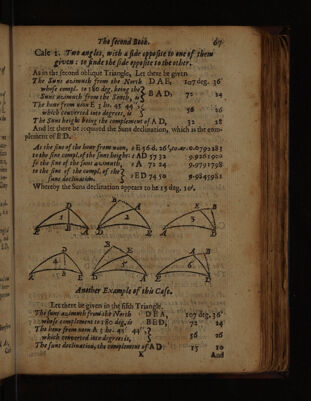 The second Book. 67
Case 2. Two angles, with a side opposite to one of them
given: to finde the side opposite to the other.
As in the second oblique Triangle, Let there be given
The Suns azimuth from the North D A E, 107 deg. 36'
whose compl. to 180 deg. being the
Suns azimuth from the South, is B A D; 72 24
The hour from noon E 3 ho. 45' 44''
which converted into degrees, is 56 26
The Suns height being the complement of A D, 32 28
And let there be required the Suns declination, which is the com-
plement of E D.
As the sine of the hour from noon, : E 56 d. 26'. co. ar. 0.0792283
to the sine compl. of the suns height: : A D 57 32 9.9261900
so the sine of the suns azimuth, : A 72 24 9.9791798
to the sine of the compl. of the
suns declination. : E D 74 50 9.9845981
Whereby the Suns declination appears to be 15 deg. 10'.
D B D B
1 2 3
E A D E A E D
D B D A B
4 5 6
E A B E A E D
Another Example of this Case.
Let there be given in the fifth Triangle.
The suns azimuth from the North D E A, 107 deg. 36'
whose complement to 180 deg. is B E D, 72 24
The hour from noon A 3 ho. 45' 44''
which converted into degrees, is 56 26
The suns declination, the complement of A D: 15 10
K And